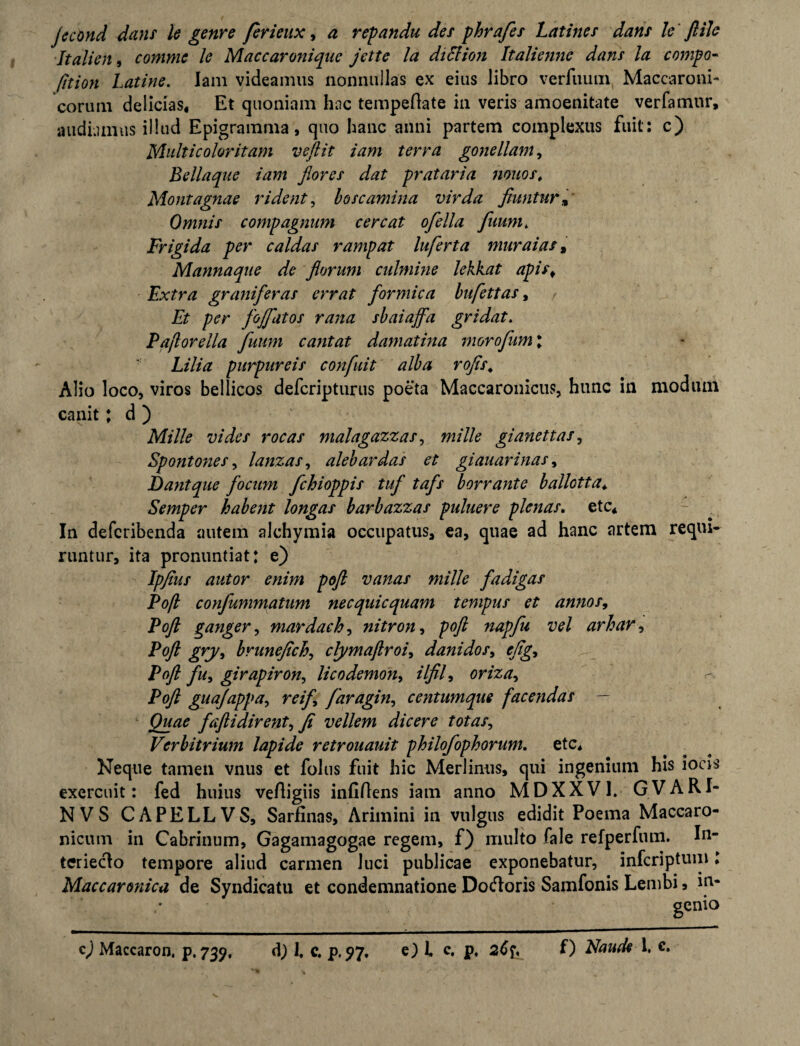 second dans le genre serieux, a repandu des phrases Latines dans le stile
Italien, comme le Maccaronique jette la diction Italienne dans la compo-
sition Latine. Iam videamus nonnullas ex eius libro versuum Maccaroni-
corum delicias. Et quoniam hac tempestate in veris amoenitate versamur,
audiamus illud Epigramma, quo hanc anni partem complexus fuit: c)
Multicoloritam vestit iam terra gonellam,
Bellaque iam flores dat prataria nouos.
Montagnae rident, boscamina virda fiuntur,
Omnis compagnum cercat osella suum.
Frigida per caldas rampat luserta muraias,
Mannaque de florum culmine lekkat apis,
Extra graniferas errat formica busettas,
Et per fossatos rana sbaiassa gridat.
Pastorella suum cantat damatina morosum;
Lilia purpureis consuit alba rosis.
Alio loco, viros bellicos descripturus poëta Maccaronicus, hunc in modum
canit: d)
Mille vides rocas malagazzas, mille gianettas,
Spontones, lanzas, alebardas et giauarinas,
Dantque focum schioppis tuf tafs borrante ballotta.
Semper habent longas barbazzas puluere plenas. etc.
In describenda autem alchymia occupatus, ea, quae ad hanc artem requi-
runtur, ita pronuntiat: e)
Ipsius autor enim post vanas mille fadigas
Post consummatum necquicquam tempus et annos,
Post ganger, mardach, nitron, post napsu vel arhar,
Post gry, brunesich, clymastroi, danidos, esig,
Post su, girapiron, licodemon, ilsil, oriza,
Post guasappa, reif, faragin, centumque facendas —
Quae fastidirent, si vellem dicere totas,
Verbitrium lapide retrouauit philosophorum. etc.
Neque tamen vnus et solus fuit hic Merlinus, qui ingenium his iocis
exercuit: sed huius vestigiis insistens iam anno MDXXVI. GVARI-
NVS CAPELLVS, Sarsinas, Arimini in vulgus edidit Poema Maccaro-
nicum in Cabrinum, Gagamagogae regem, f) multo sale respersum. In-
teriecto tempore aliud carmen luci publicae exponebatur, inscriptum:
Maccaronica de Syndicatu et condemnatione Doctoris Samsonis Lembi, in-
genio
c) Maccaron. p. 739. d) l. c. p. 97. e) l. c. p. 265. f) Naude l. c.